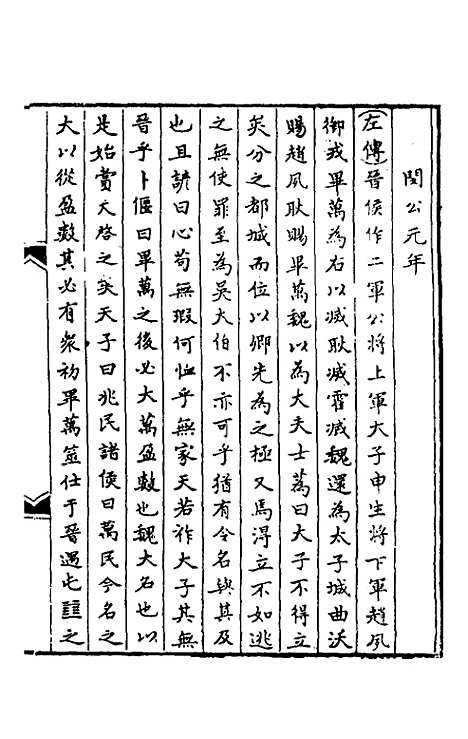 閔公元年
左傳晉侯作二軍公將上軍大子申生將下軍趙夙
御戎畢萬為右以滅耿滅霍滅魏還為太子城曲沃
賜趙夙耿賜畢萬魏以為大夫士蒍曰大子不得立
矣分之都城而位以卿先為之極又焉淂立不如逃
之無使罪至為吳大伯不亦可乎猶有令名與其及
也且諺曰心苟無瑕何恤乎無家天若祚大子其無
晉乎卜偃曰畢萬之後必大萬盈數也魏大名也以
是始賞天啓之矣天子曰兆民諸侯曰萬民今名之
大以從盈數其必有衆初畢萬筮仕于晉遇屯䷂之